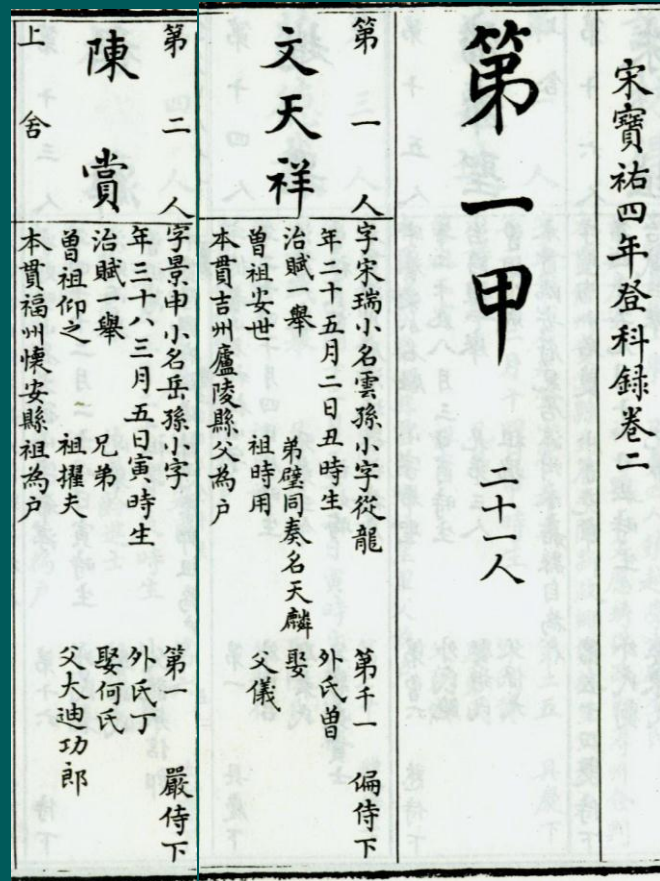 宋寶祐四年登科録卷二
第一甲 二十一人
第一人
文天祥
字宋瑞小名雲孫小字從龍 第千一 偏侍下
年二十五月二日丑時生 外氏曾
治賦一舉 弟璧同奏名天麟 娶
曾祖安世 祖時用 父儀
本貫吉州廬陵縣父為户
第二人
陳賞
上舍
字景申小名岳孫小字 第一 嚴侍下
年三十八三月五日寅時生 外氏丁
治賦一舉 兄弟 娶何氏
曾祖仰之 祖擢夫 父大迪功郎
本貫福州懷安縣祖為户